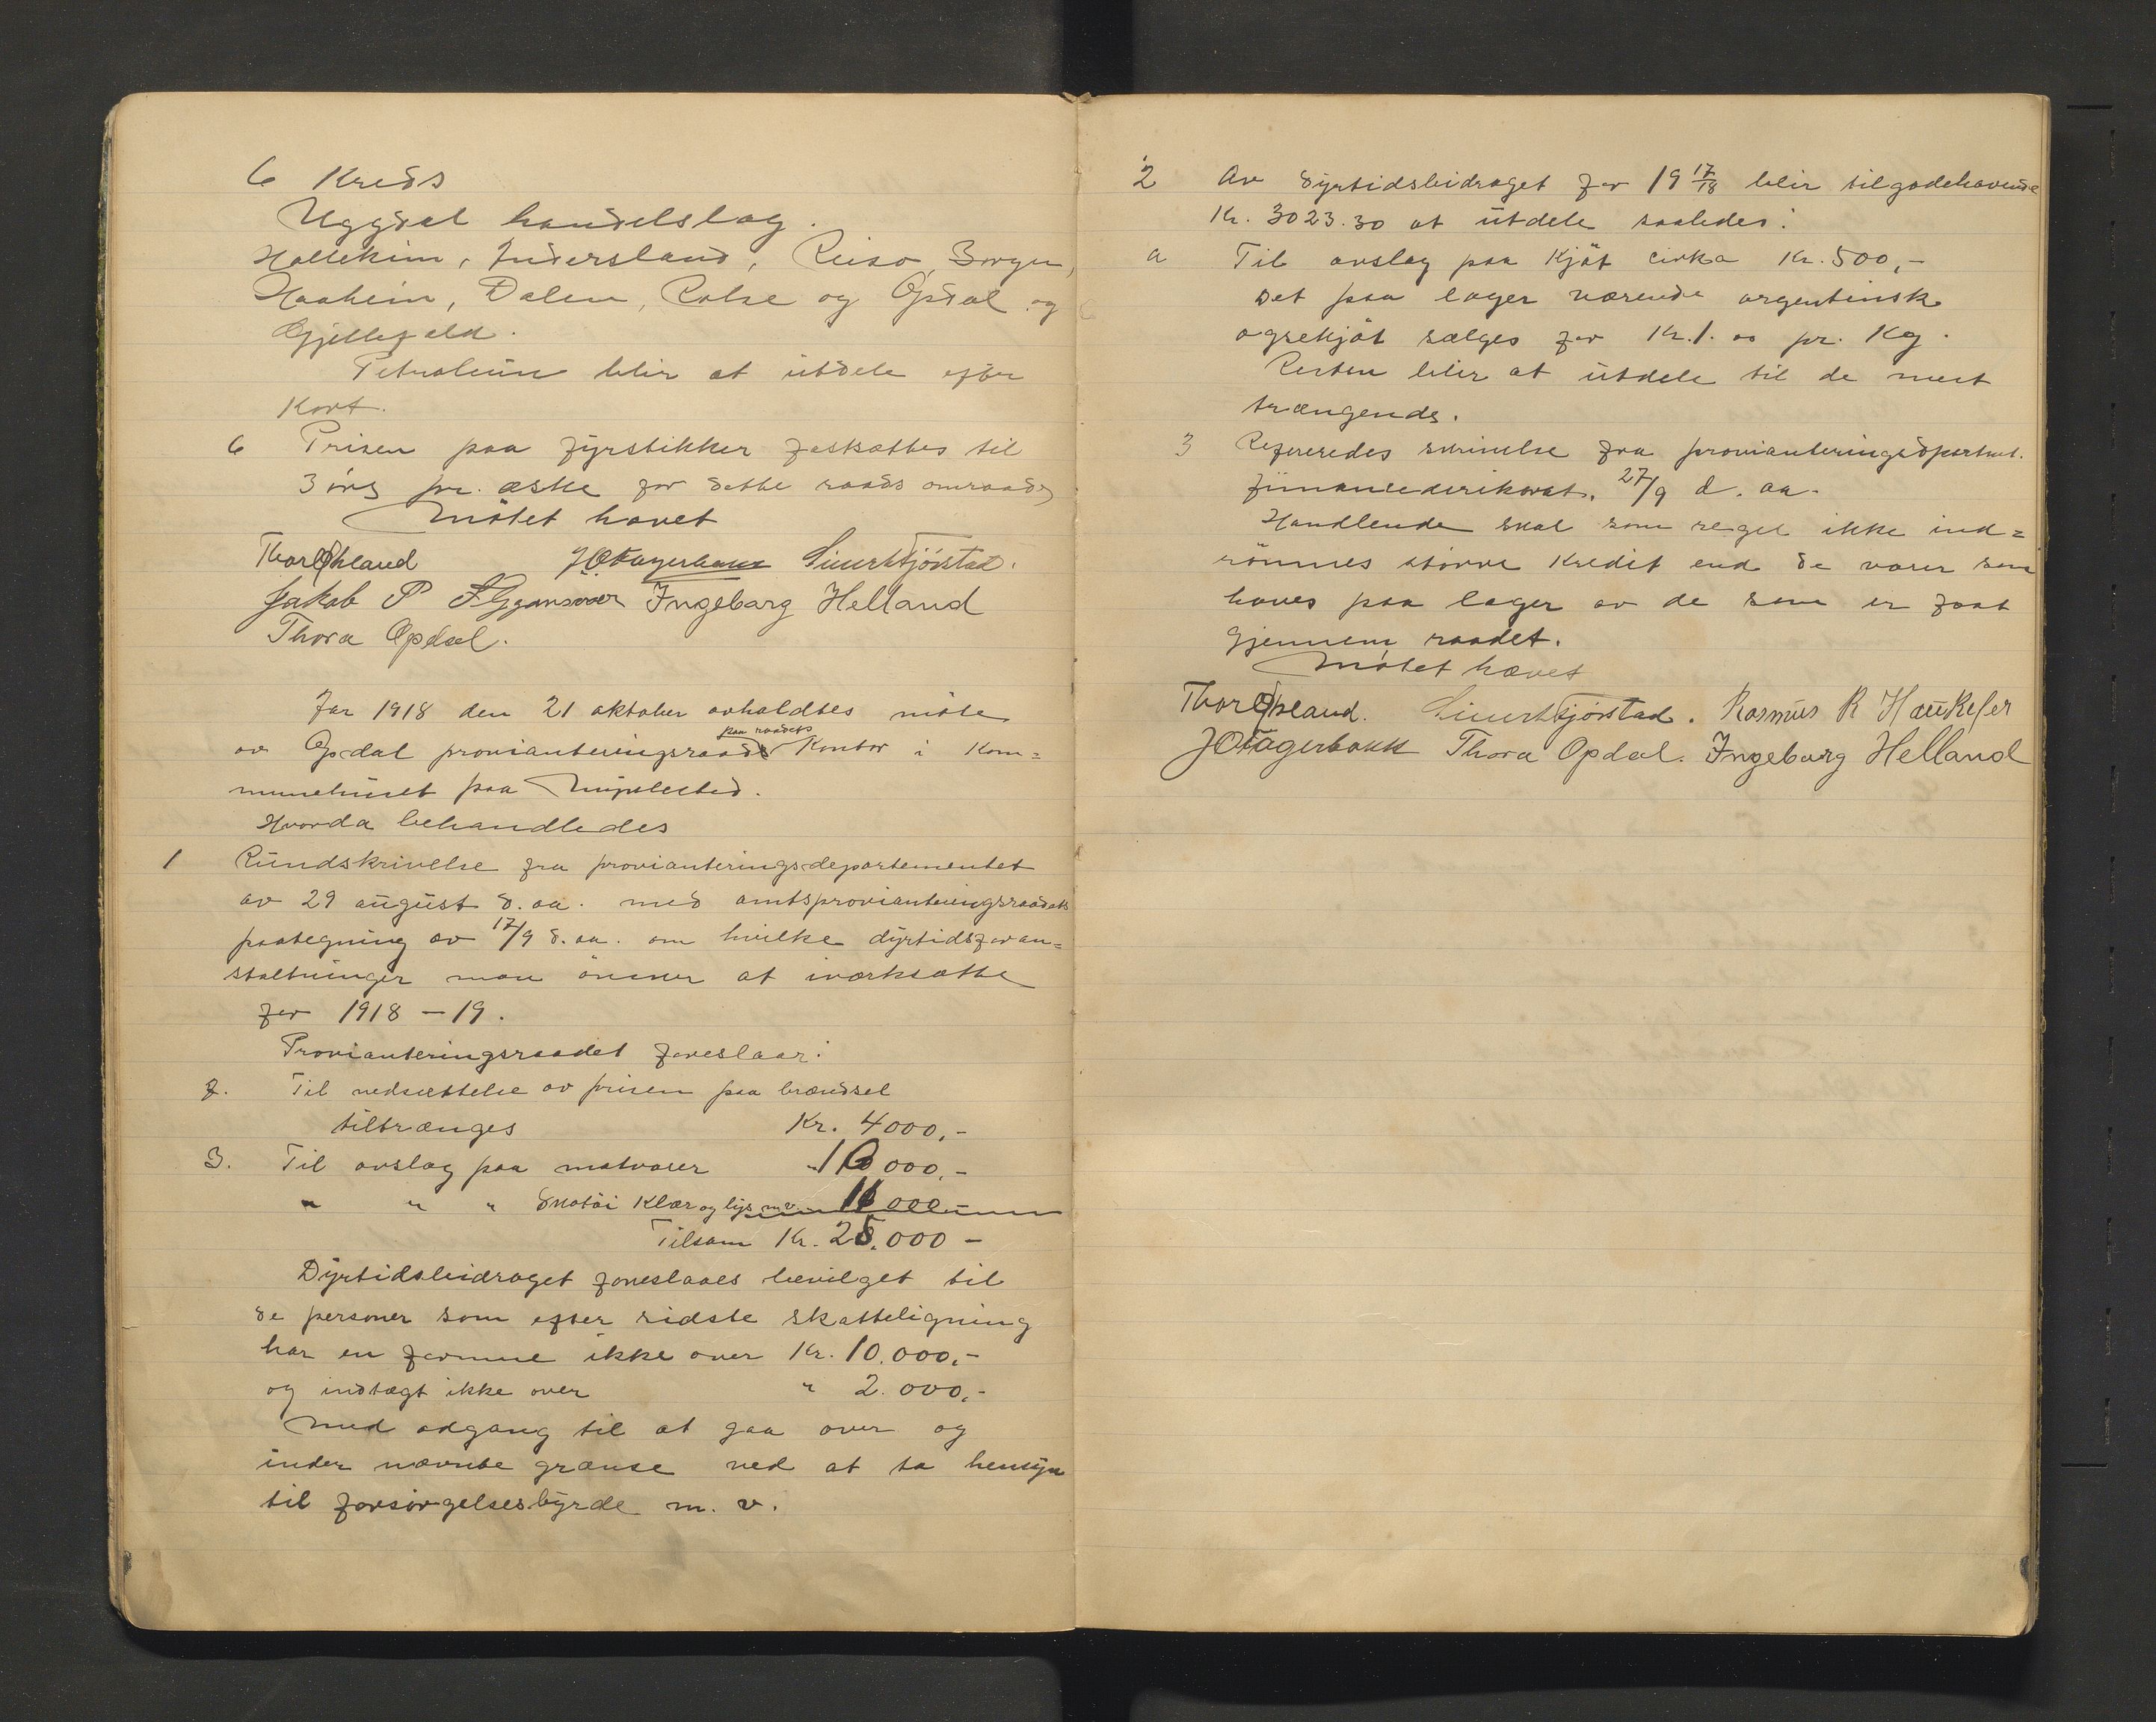 6 Kreds
Uggdal handelslag.
Hallekim, Indersland, Reiso, Sørgen,
Haaheim, Dalen, Rolse og Opdal og
Gjellefald.
Petroleum blir at utdele efter
Kort.
6 Prisen paa fyrstikker fastsættes til
3 øre pr. æske for dette raads omraade
Møtet hævet
Thor Øpland J O Fagerbakk Sivert Kjørstad.
Jakob P Ingeborg Helland
Thora Opdal.
Aar 1918 den 21 oktober avholdtes møte
paa raadets
av Opdal provianteringsraads Kontor i Kom=
munehuset paa Myklestad.
Hvorda behandledes
1 Rundskrivelse fra provianteringsdepartementet
av 29 august d. aa. med amtsprovianteringsraadets
paategning av 17/9 d. aa. om hvilke dyrtidsforan=
staltninger man ønsker at iverksætte
for 1918 – 19.
Provianteringsraadet foreslaar:
2. Til nedsættelse av prisen paa brændsel
tiltrænges Kr. 4000,-
3. Til avslag paa matvarer " 10 000,-
" " " Skotøi Klær og lys m.v. 11 000 –
Tilsam Kr. 25.000 –
Dyrtidsbidraget foreslaaes bevilget til
de personer som efter sidste skatteligning
har en formue ikke over Kr. 10.000,-
og indtægt ikke over " 2.000,-
med adgang til at gaa over og
under nævnte grænse ved at ta hensyn
til forsørgelsesbyrde m. v.
2 Av dyrtidsbidraget for 19 17/18 blir tilgodehavende
Kr. 3023.30 at utdele saaledes:
a Til avslag paa Kjøt cirka Kr. 500,-
Det paa lager værende argentinsk
oksekjøt sælges for Kr. 1.00 pr. Kg.
Resten blir at utdele til de mest
trængende.
3 Refereredes skrivelse fra provianteringsdpartmet.
finansdirektorat. 27/9 d. aa.
Handlende skal som regel ikke ind=
rømmes større Kredit end de varer som
haves paa lager av de som er faat
gjennem raadet.
Møtet hævet
Thor Øpland. Sivert Kjørstad. Rasmus R Haukefer
J O Fagerbakk Thora Opdal. Ingeborg Helland